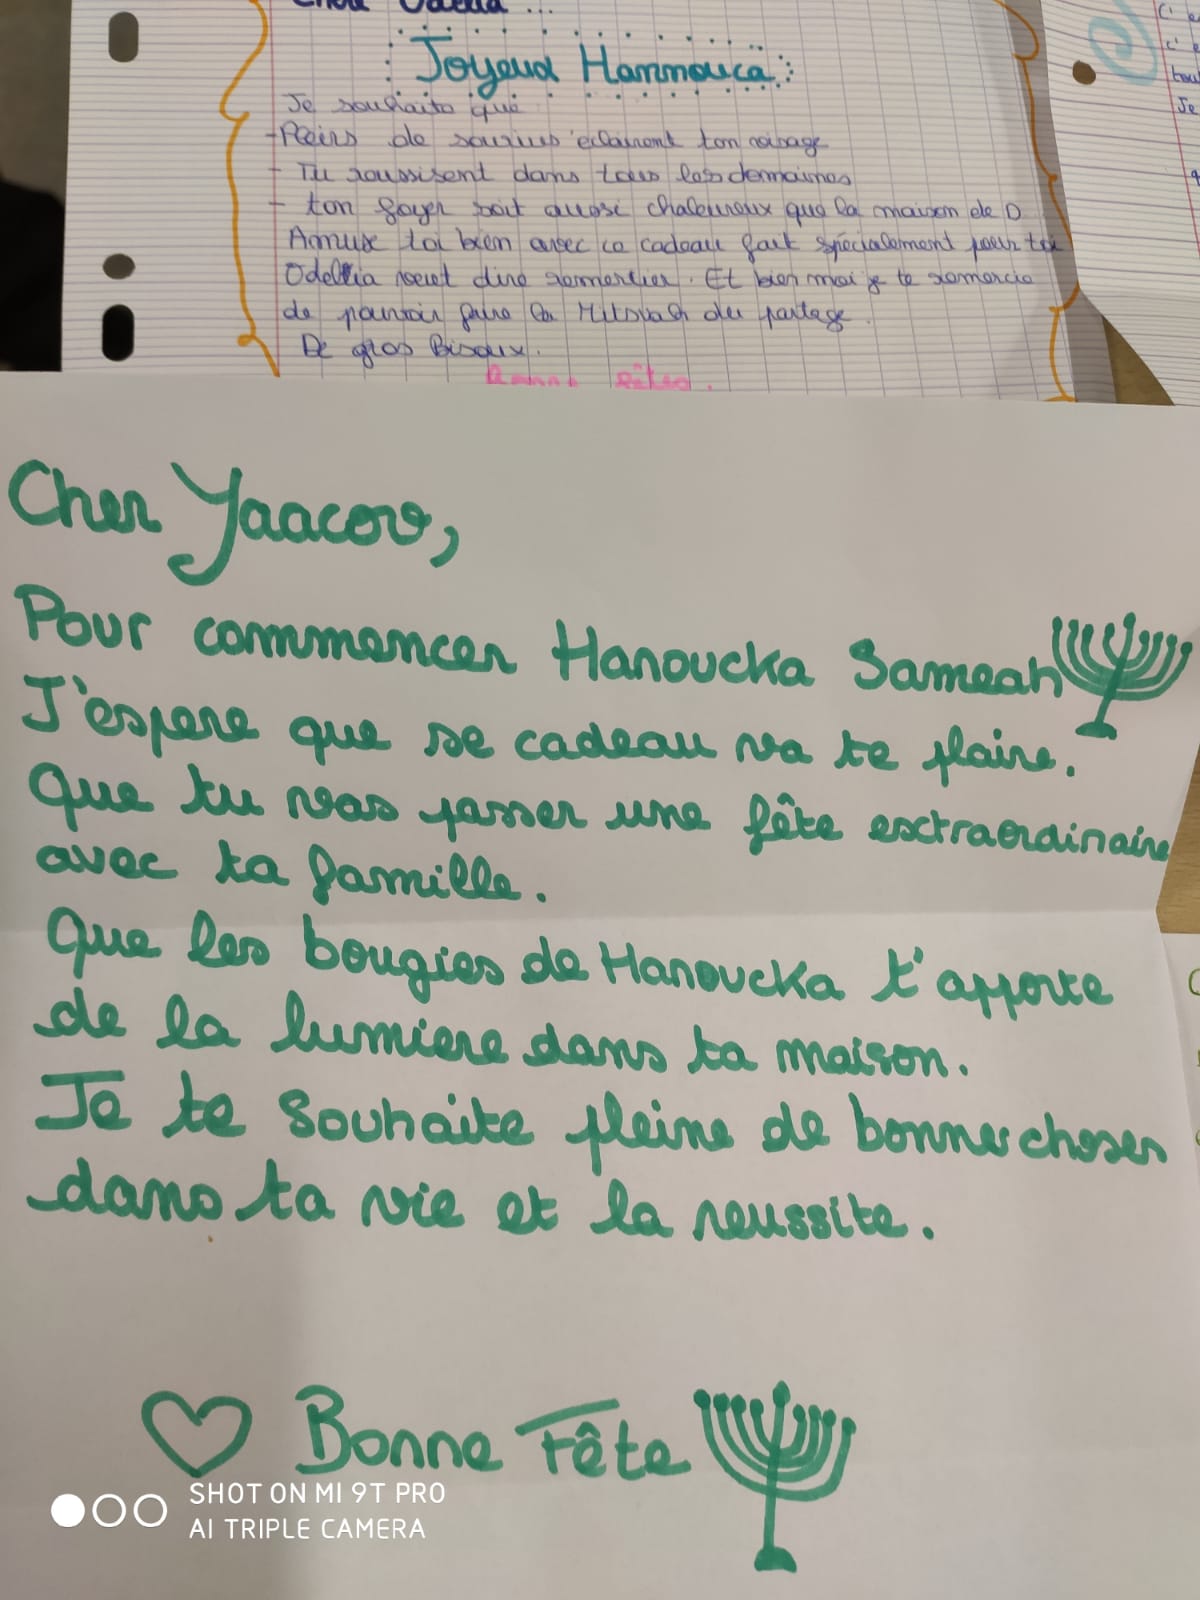 Joyeux Hammouca
Je souhaite que
- Pleins de sourires éclairent ton visage
- Tu roussisent dans tous les domaines
- ton foyer soit aussi chaleureux que la maison de D
Amuse toi bien avec ce cadeau fait spécialement pour toi
Odellia veut dire remercier. Et bien moi je te remercie
de pouvoir faire la Mitsvah du partage.
De gros Bisoux.
Cher Yaacov,
Pour commencer Hanoucka Sameah
J'espere que se cadeau va te plaire.
Que tu vas passer une fête exctraordinaire
avec ta famille.
Que les bougies de Hanoucka t'apporte
de la lumiere dans ta maison.
Je te souhaite pleine de bonnes choses
dans ta vie et la reussite.
Bonne Fête
SHOT ON MI 9T PRO
AI TRIPLE CAMERA